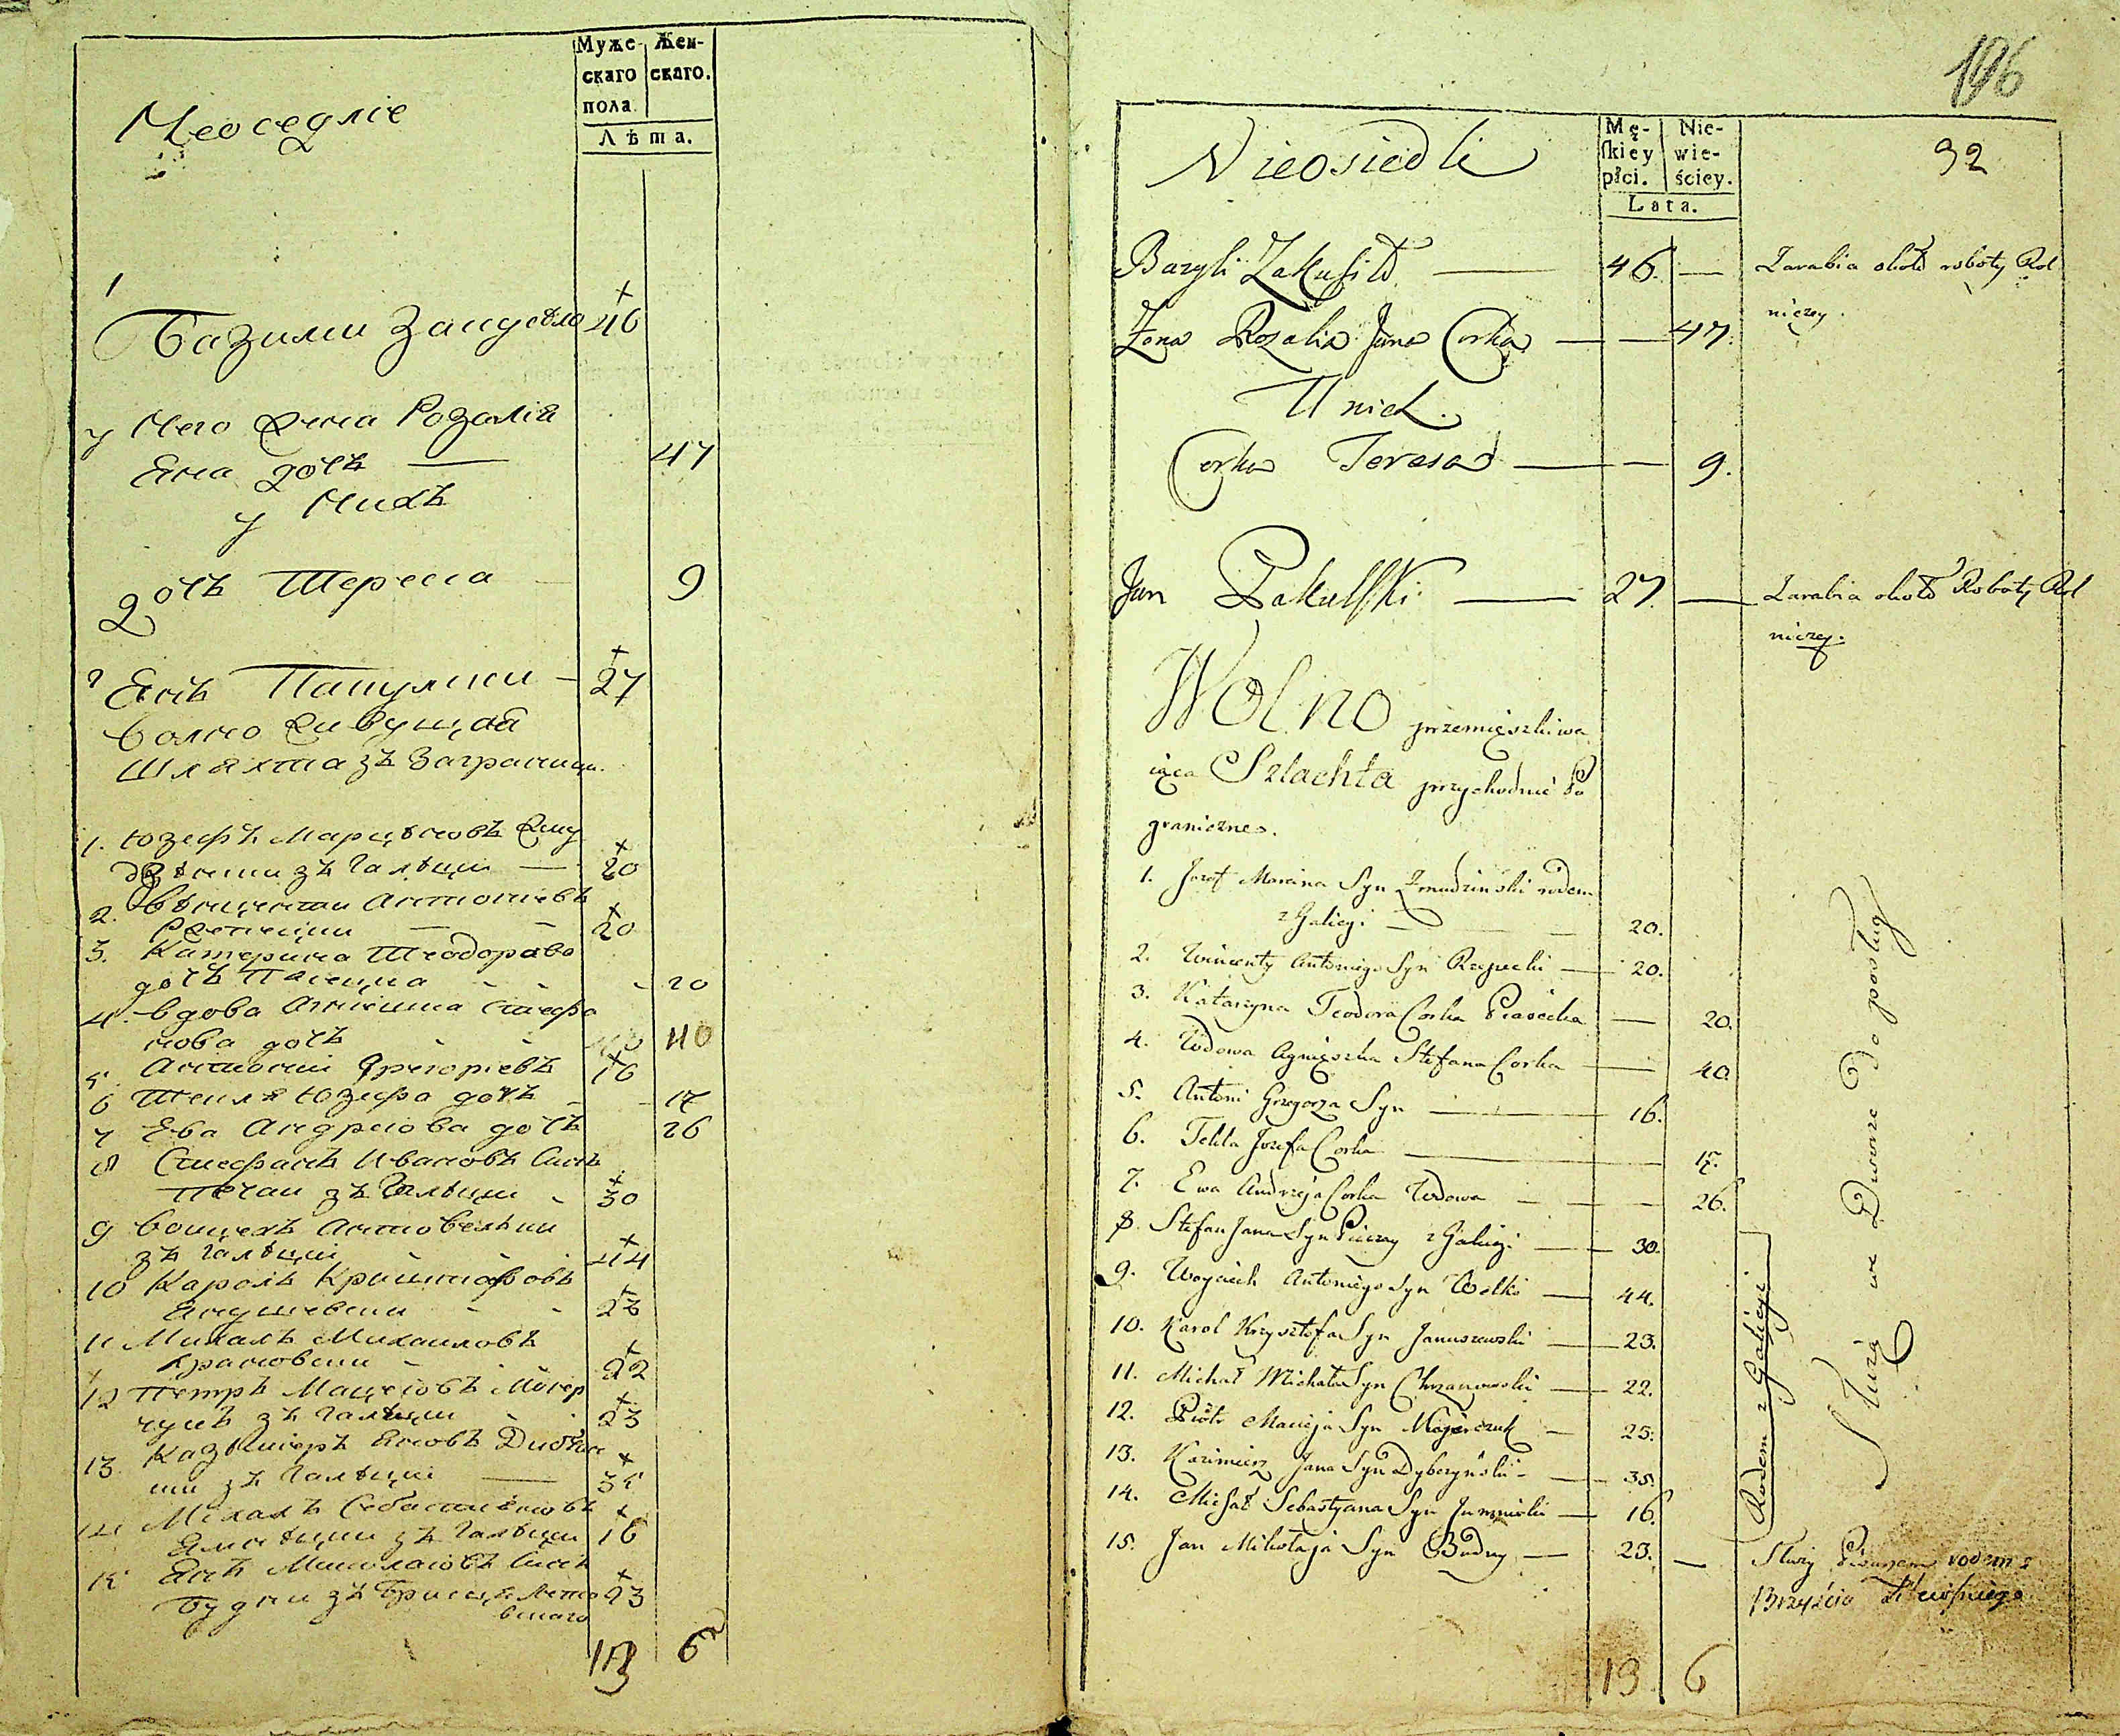 Муже- Жен-
скаго скаго.
пола
Лѣта.
Неоседліе
1
Базили Закусило 46
у него жена Розалія
Яна дочь — 47
у нихъ
дочь Тереса 9
2 Янъ Пакулски — 27
волно живущая
шляхта зъ заграници.
1. Юзефъ Марциновъ Жму
дзински зъ Галиции — 20
2. Винцентий Антониевъ
Ржепецки — 20
3. Катерина Теодорова
дочъ Пясецка 20
4. вдова Агнешка Стефа
нова дочъ 40
5. Антоний Грегориевъ 16
6 Текля Юзефа дочъ 17
7 Ева Андреова дочъ 26
8 Стефанъ Ивановъ Синъ
зъ Галиции 30
9 Войцехъ Антов
зъ Галиции 44
10 Кароль Криштофовъ
Янушевски - - 23
11 Михалъ Михаиловъ
Храновски - 22
12 Петръ Мацеовъ Маер
чукъ зъ Галиции 23
13 Казимеръ Яновъ Дибжин
ски зъ Галиции — 35
14 Михалъ Себастияновъ
Ямницки зъ Галиции 16
15 Янъ Миколаовъ Синъ
Будны зъ Бриста Лито
вскаго 23
13 6
196
Mę- Nie-
skiey wie-
płci. ściey.
Lata.
32
Nieosiedli
Bazyli Zakusiło — 46. — Zarabia około roboty Rol
niczey.
Żona Rozalia Jana Corka — — 47.
U nich.
Corka Teresa — — 9.
Jan Pakulski — 27. — Zarabia około Roboty Rol
niczey.
Wolno przemięszkiwa
iąca Szlachta przychodnie Po
graniczne.
1. Jozef Marcina Syn Zmudzinski rodem
z Galicyi — 20.
2. Wincenty Antoniego Syn Rzepecki — 20.
3. Katarzyna Teodora Corka Piasecka — 20.
4. Wdowa Agnięszka Stefana Corka — 40.
5. Antoni Grzegorza Syn — 16.
6. Tekla Jozefa Corka — 17.
7. Ewa Andrzeja Corka Wdowa — 26.
8. Stefan Jana Syn z Galicyi — 30.
9. Woyciech Antoniego Syn Wołki — 44.
10. Karol Krzysztofa Syn Januszewski — 23.
11. Michał Michała Syn Chrzanowski — 22.
12. Piotr Macieja Syn Majerczuk — 23.
13. Kazimierz Jana Syn Dyberzyński — 35.
14. Michał Sebastyana Syn Jamnicki — 16.
15. Jan Mikołaja Syn Budny — 23. — Służy Pisarzem rodem z
Brześcia Litewskiego
Rodem z Galicyi
Służą we Dworze do posług
13 6